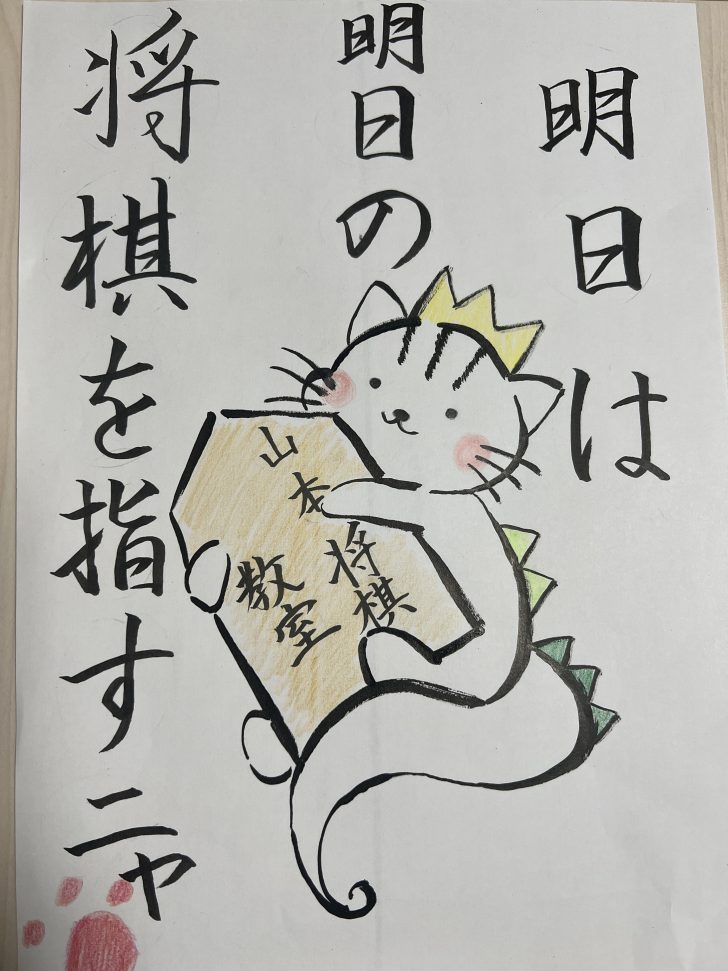 明日は
明日の
将棋を指すニャ
山本
将棋
教室